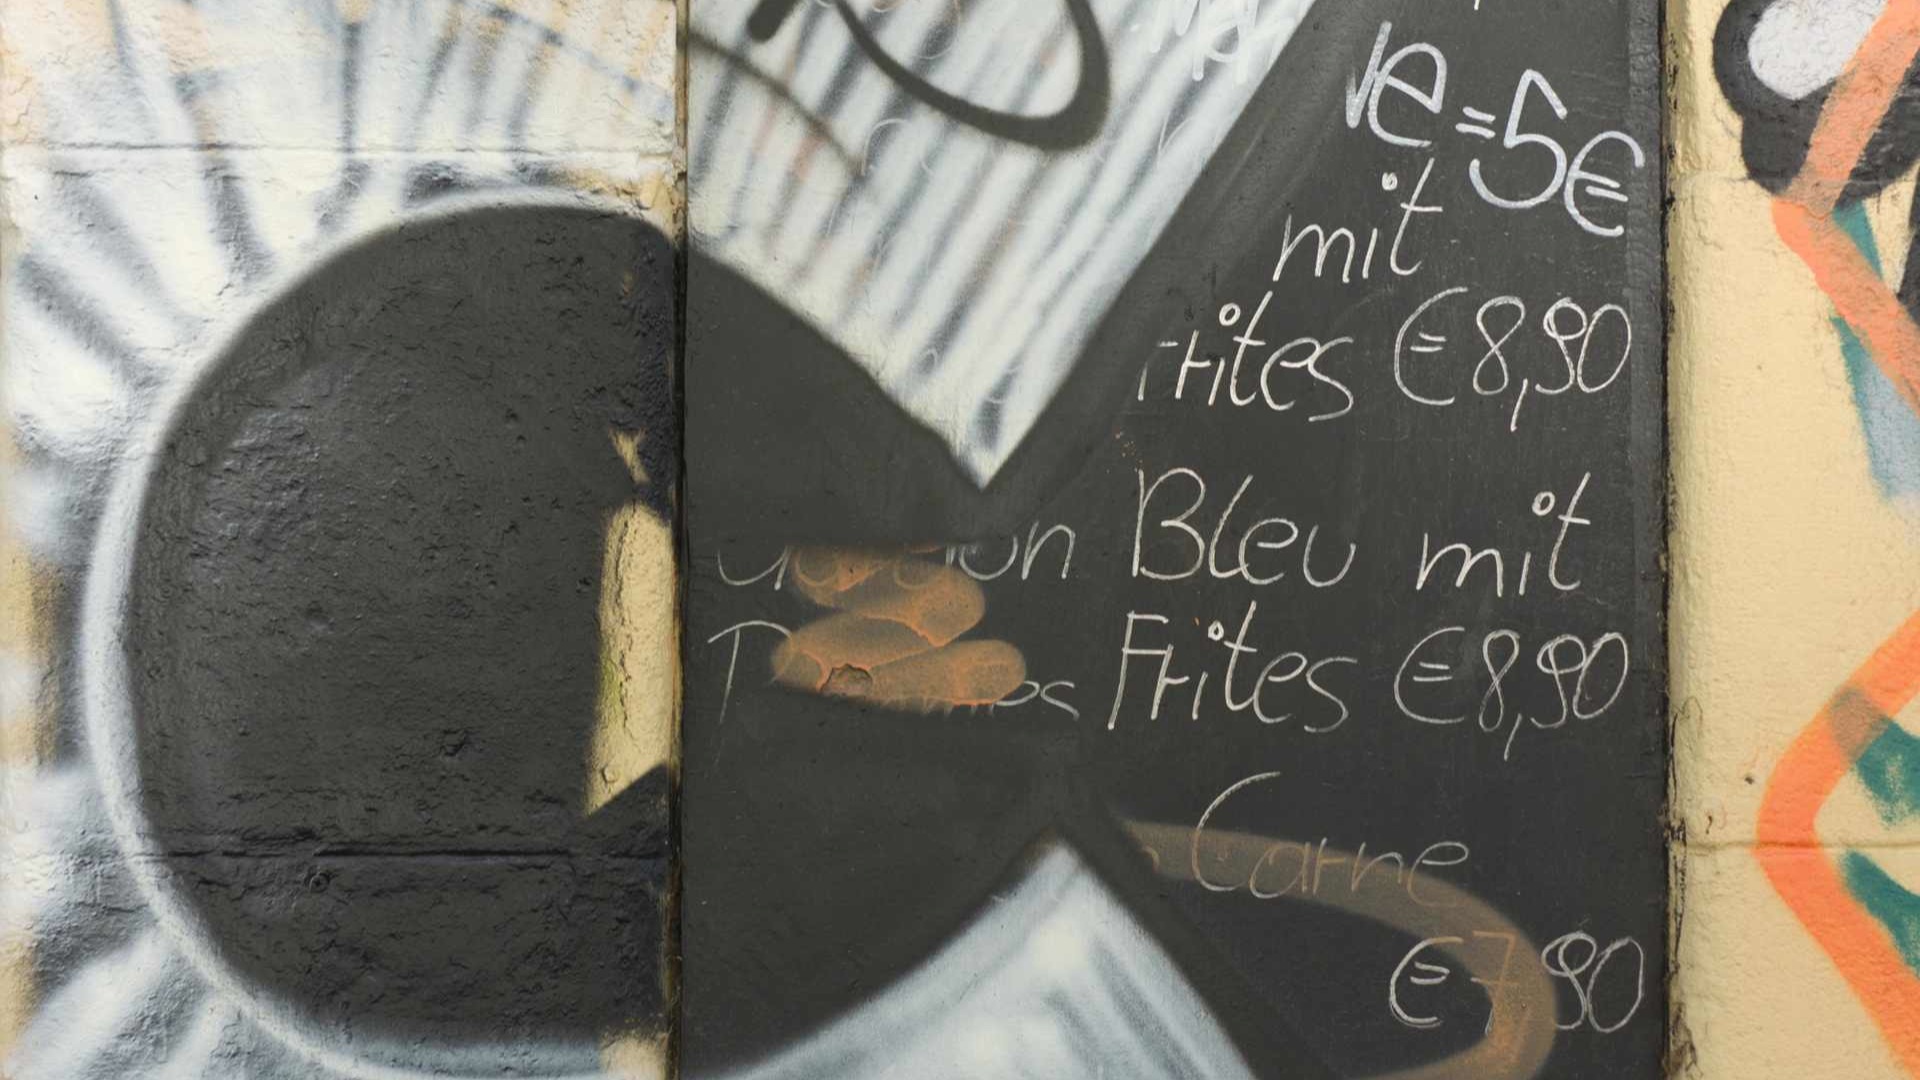 =5€
mit
Frites €8,90
Bleu mit
Frites €8,90
Carne
€7,90